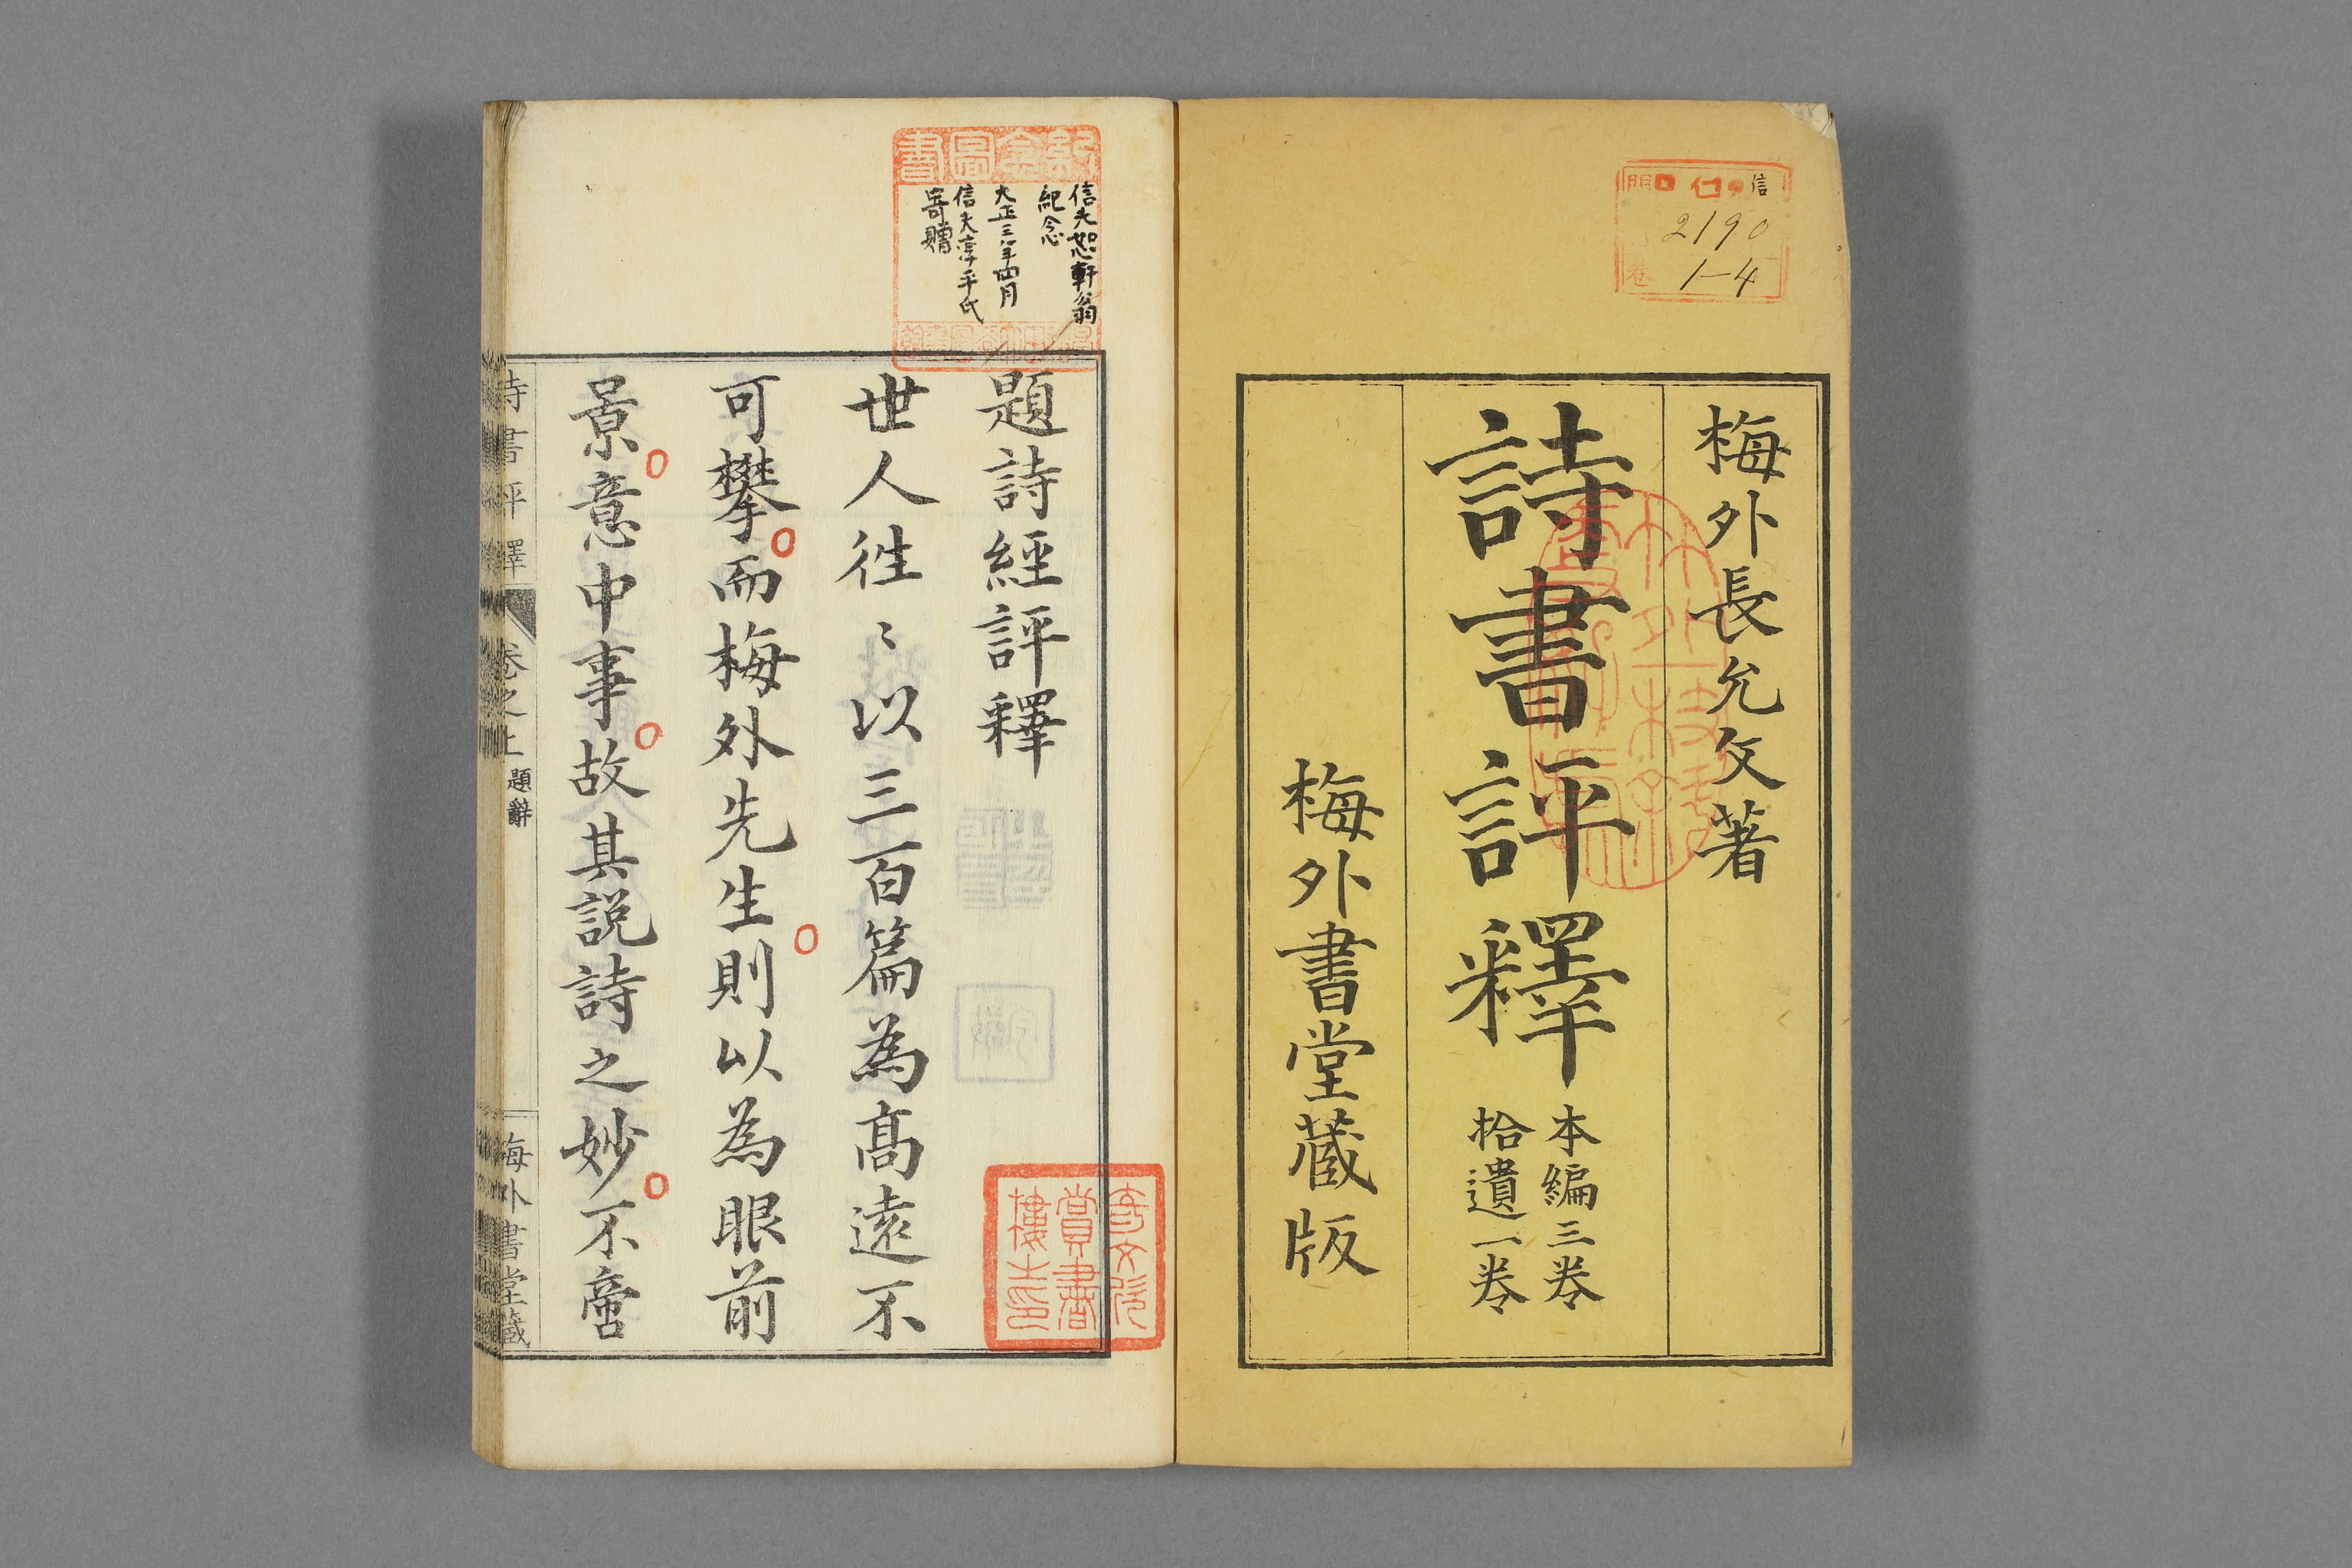 門 ロ 仁 信
2190
巻 1-4
梅外長允文著
詩書評釋
本編三巻
拾遺一巻
梅外書堂蔵版
圖書
信夫恕軒翁
紀念
大正三年四月
信夫淳平氏
寄贈
題詩經評釋
世人往〻以三百篇為髙遠不
可攀而梅外先生則以為眼前
景意中事故其説詩之妙不啻
奇文欣
賞書
樓之印
詩書評釋 卷之上 題辭 梅外書堂藏